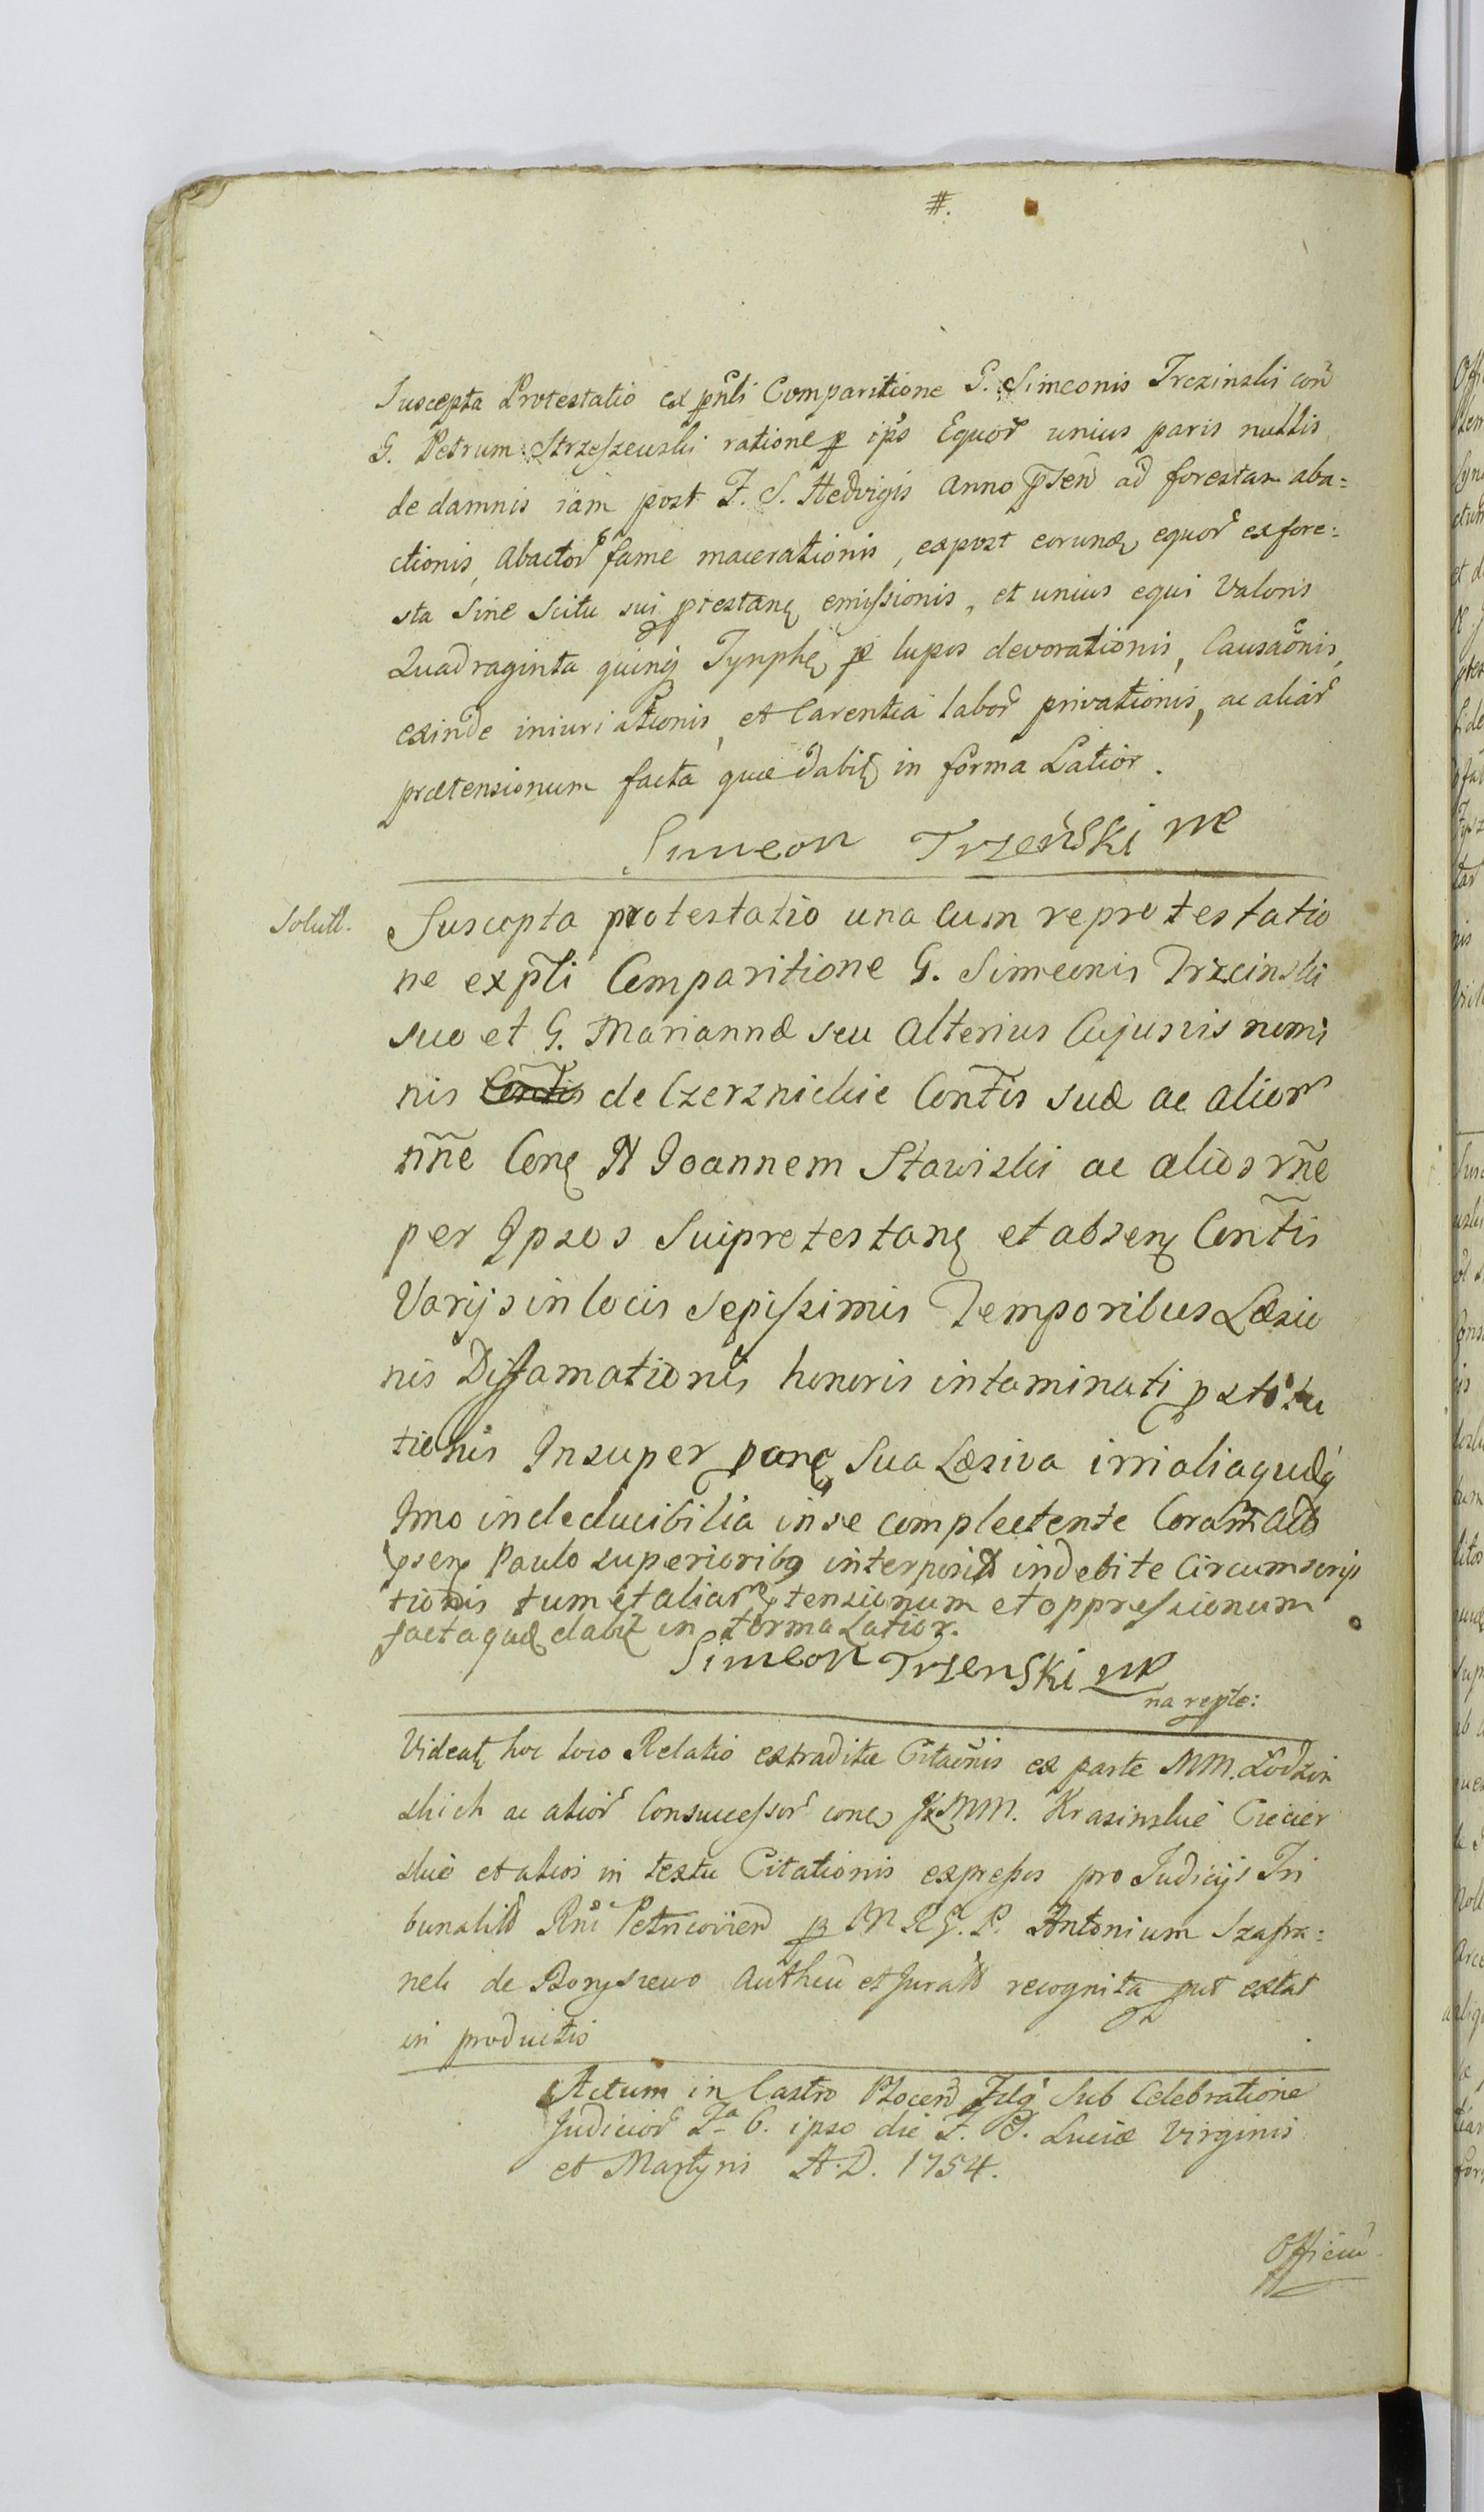 #.
Suscepta Protestatio ex pñli Comparitione G. Simeonis Trzcinski con̄
G. Petrum Strzeszewski ratione p ips̄ Equor̄ unius paris nullis
de damnis iam post F. S. Hedvigis anno p̄sen̄ ad forestam aba=
ctionis, abactor̄ fame macerationis, expost eorund equor̄ ex fore=
sta Sine Scitu sui ptestanę emissionis, et unius equi Valoris
Quadraginta quinq Tynphę p lupos devorationis, Causaōnis,
exinde iniuriationis, et Carentia labor̄ privationis, ac aliar̄
prætensionum facta quæ dabitę in forma Latior.
Simeon Trzeński mp
Solutt. Suscepta protestatio una cum reprotestatio
ne ex p̄li Comparitione G. Simeonis Trzcinski
suo et G. Mariannæ seu Alterius Cujusvis nomi
nis de Czerznichie Con̄tis suæ ac alior̄
nn̄e Conę N Joannem Stawiski ac alios rñe
per Ipsos Suiprotestanę et absenę Con̄tis
Varijs in locis sepissimis Temporibus Læsio
nis Diffamationis honoris intaminati pstitu
tionis Insuper panę Sua Læsiva irri aliaquæq
Imo indeducibilia in se complectente Coram Actis
psenę Paulo superioribq interposit indebite Circumscrip
tionis tum et aliar̄ ptensionum et oppressionum
facta quæ dabitę in forma Latior.
Simeon Trzenski mp
na repte:
Videatę hoc loco Relatio extraditæ Citaōnis ex parte MM. Łodzin
skich ac alior̄ Consuccessor̄ conę MM. Krasinskie Ciecier
skie et alios in textu Citationis expressos pro Judicijs Tri
bunalit̄ Rni Petricovien̄ p M R G. P. Antonium Szafra=
nek de Boryszewo Authen̄ et Jurat̄ recognita put extat
in productis
Actum in Castro Plocen̄ Sub Celebratione
Judicior̄ Fa 6. ipso die F. S. Luciæ Virginis
et Martyris A.D. 1754.
Officiu̅